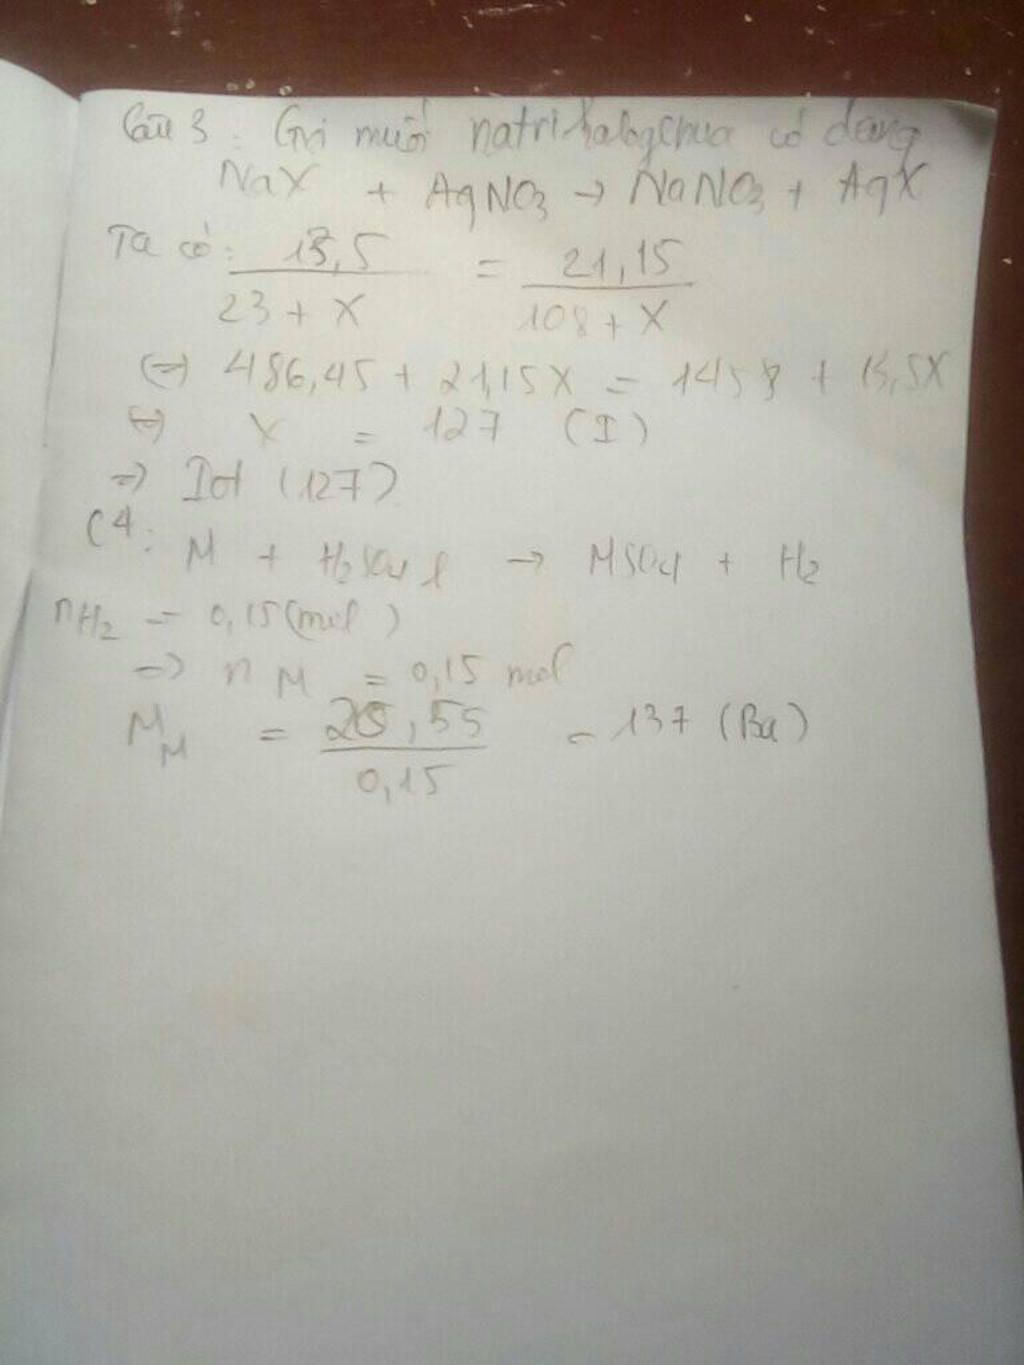 Câu 3: Gọi muối natri halogen chưa có dạng
NaX + AgNO3 → NaNO3 + AgX
Ta có: 13,5 / 23 + X = 21,15 / 108 + X
(=) 486,45 + 21,15X = 1458 + 13,5X
(=) X = 127 (I)
=) Iot (127)
C4: M + H2SO4 l → MSO4 + H2
nH2 = 0,15 (mol)
=) nM = 0,15 mol
MM = 20,55 / 0,15 = 137 (Ba)